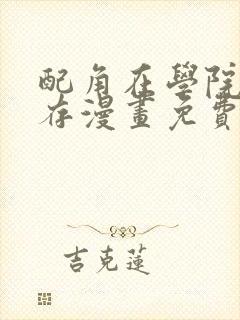 配角在學院
存漫畫免費
吉克蓮